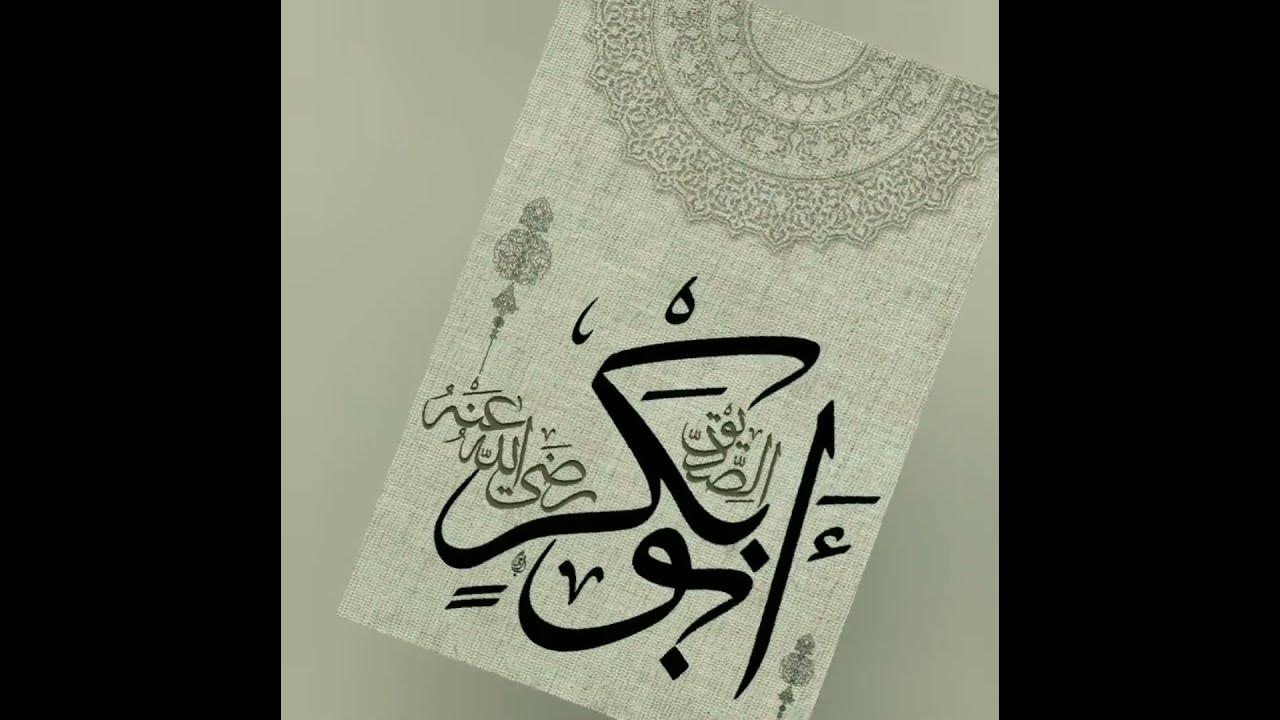 أَبُو بَكْرٍ
الصِّدِّيق
رَضِيَ اللهُ عَنْهُ